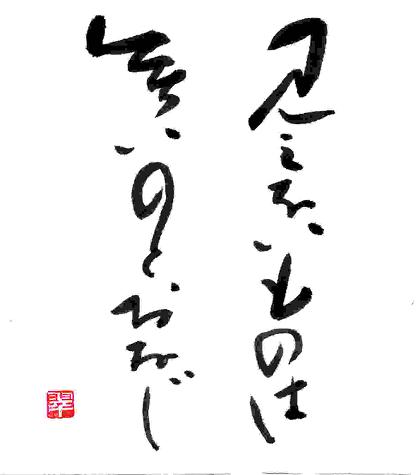 見えないものは
無いのとおなじ
翠